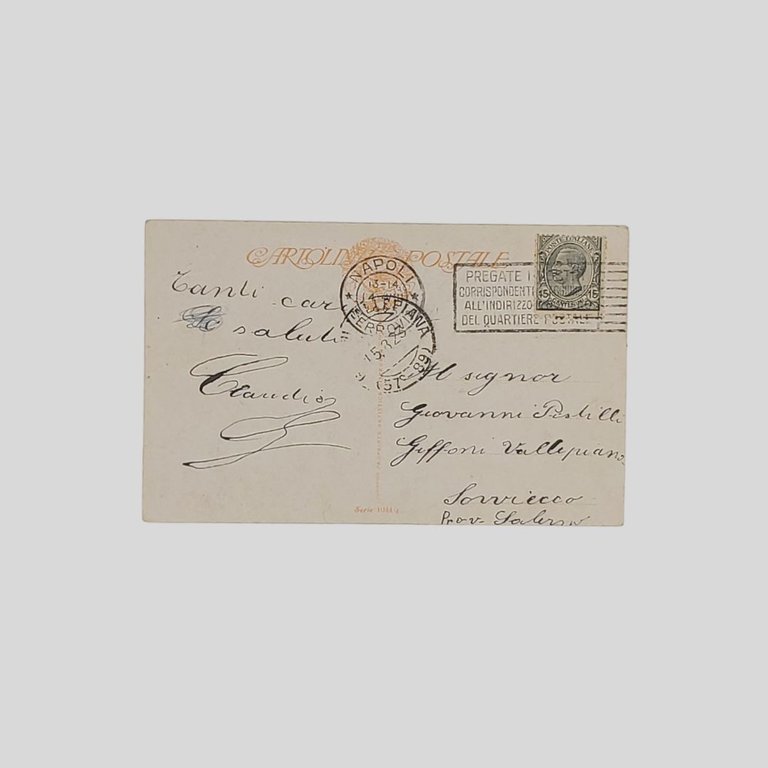 CARTOLINA POSTALE
NAPOLI
13-14
VALLEPIANA
PREGATE I
CORRISPONDENTI
ALL'INDIRIZZO
DEL QUARTIERE POSTALE
POSTE ITALIANE
15 15
Tanti cari
saluti
Claudio
Al signor
Giovanni
Giffoni Vallepiana
Sovvieco
Prov. Salerno
Serie